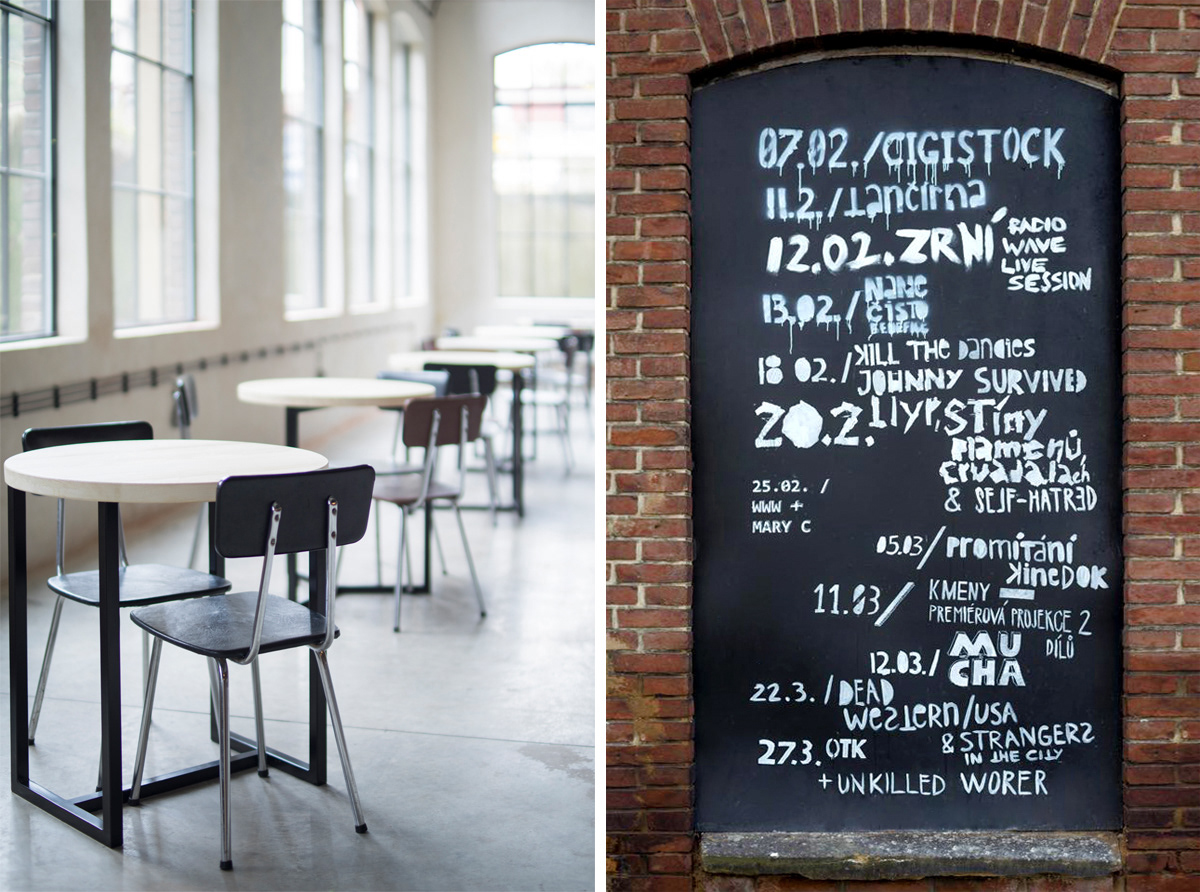 07.02./CIGISTOCK
11.2./Tančírna
12.02. ZRNÍ RADIO
WAVE
LIVE
SESSION
13.02./NANE
ČISTO
18 02./KILL THE DANDIES
JOHNNY SURVIVED
20.2. Ilyr, STÍNY
PLAMENŮ,
& SELF-HATRED
25.02. /
WWW +
MARY C
05.03/PROMÍTÁNÍ
KineDOK
11.03/KMENY
PREMIÉROVÁ PROJEKCE 2
DÍLŮ
12.03./MU
CHA
22.3. /DEAD
WESTERN/USA
& STRANGERS
IN THE CITY
27.3. OTK
+UNKILLED WORER